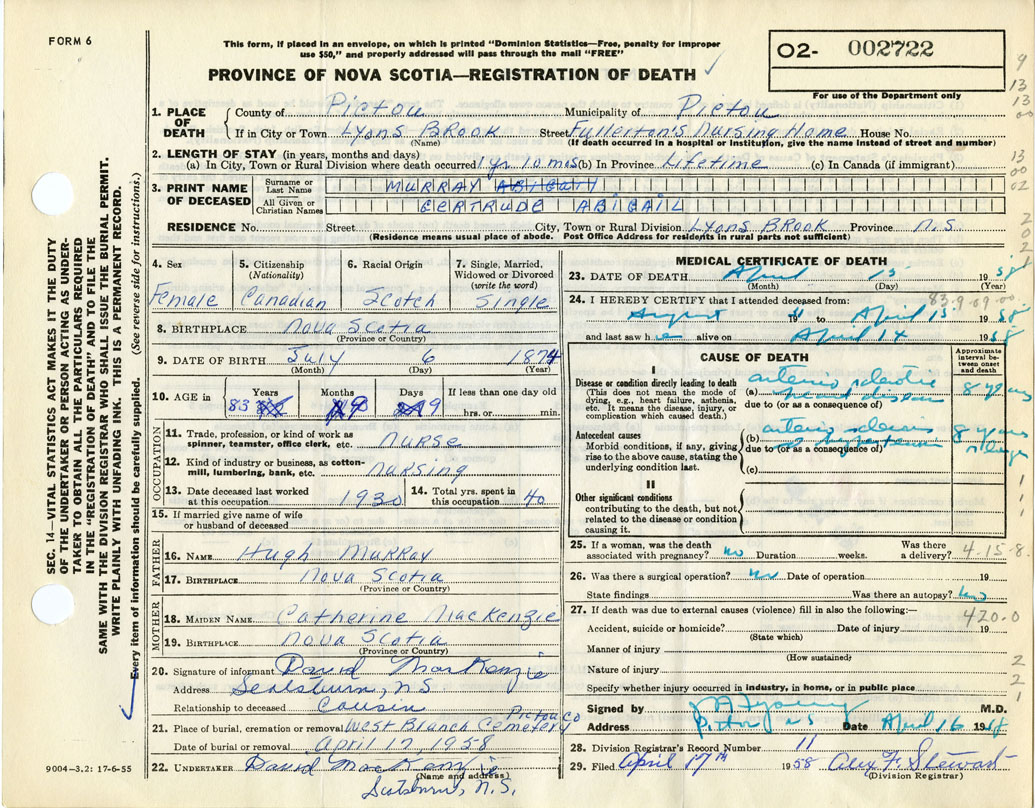 FORM 6
This form, if placed in an envelope, on which is printed "Dominion Statistics—Free, penalty for improper
use $50," and properly addressed will pass through the mail "FREE"
02- 002722
PROVINCE OF NOVA SCOTIA—REGISTRATION OF DEATH
For use of the Department only
1. PLACE OF DEATH
County of Pictou Municipality of Pictou
If in City or Town Lyons Brook Street Fullerton's Nursing Home House No.
(Name) (If death occurred in a hospital or institution, give the name instead of street and number)
2. LENGTH OF STAY (in years, months and days)
(a) In City, Town or Rural Division where death occurred 1 yr 10 mos (b) In Province Lifetime (c) In Canada (if immigrant)
3. PRINT NAME OF DECEASED
Surname or Last Name MURRAY
All Given or Christian Names GERTRUDE ABIGAIL
RESIDENCE No. Street City, Town or Rural Division Lyons Brook Province N.S.
(Residence means usual place of abode. Post Office Address for residents in rural parts not sufficient)
4. Sex Female
5. Citizenship (Nationality) Canadian
6. Racial Origin Scotch
7. Single, Married, Widowed or Divorced (write the word) Single
8. BIRTHPLACE Nova Scotia
(Province or Country)
9. DATE OF BIRTH July 6 1874
(Month) (Day) (Year)
10. AGE in Years Months Days If less than one day old
83 9 9 hrs. or min.
OCCUPATION
11. Trade, profession, or kind of work as spinner, teamster, office clerk, etc. Nurse
12. Kind of industry or business, as cotton-mill, lumbering, bank, etc. Nursing
13. Date deceased last worked at this occupation 1930
14. Total yrs. spent in this occupation 40
15. If married give name of wife or husband of deceased
FATHER
16. NAME Hugh Murray
17. BIRTHPLACE Nova Scotia
(Province or Country)
MOTHER
18. MAIDEN NAME Catherine MacKenzie
19. BIRTHPLACE Nova Scotia
(Province or Country)
20. Signature of informant David MacKenzie
Address Scotsburn, NS
Relationship to deceased Cousin
21. Place of burial, cremation or removal West Branch Cemetery Pictou Co
Date of burial or removal April 17, 1958
22. UNDERTAKER David MacKenzie
(Name and address)
Scotsburn, N.S.
MEDICAL CERTIFICATE OF DEATH
23. DATE OF DEATH April 15 1958
(Month) (Day) (Year)
24. I HEREBY CERTIFY that I attended deceased from:
83-9-09-00
August to April 15 1958
and last saw h er alive on April 14 1958
CAUSE OF DEATH
Approximate interval between onset and death
I
Disease or condition directly leading to death
(This does not mean the mode of dying, e.g., heart failure, asthenia, etc. It means the disease, injury, or complication which caused death.)
(a) arterio sclerotic heart disease 8 years
due to (or as a consequence of)
Antecedent causes
Morbid conditions, if any, giving rise to the above cause, stating the underlying condition last.
(b) arterio sclerosis 8 years
due to (or as a consequence of)
(c)
II
Other significant conditions
contributing to the death, but not related to the disease or condition causing it.
25. If a woman, was the death associated with pregnancy? no Duration weeks. Was there a delivery?
4-15-8
26. Was there a surgical operation? no Date of operation 19
State findings Was there an autopsy? no
27. If death was due to external causes (violence) fill in also the following:—
420.0
Accident, suicide or homicide? Date of injury 19
(State which)
Manner of injury
(How sustained)
Nature of injury
Specify whether injury occurred in industry, in home, or in public place
Signed by M.D.
Address Pictou NS Date April 16 1958
28. Division Registrar's Record Number 11
29. Filed April 17th 1958 Alex F. Stewart
(Division Registrar)
SEC. 14—VITAL STATISTICS ACT MAKES IT THE DUTY
OF THE UNDERTAKER OR PERSON ACTING AS UNDER-
TAKER TO OBTAIN ALL THE PARTICULARS REQUIRED
IN THE "REGISTRATION OF DEATH" AND TO FILE THE
SAME WITH THE DIVISION REGISTRAR WHO SHALL ISSUE THE BURIAL PERMIT.
WRITE PLAINLY WITH UNFADING INK. THIS IS A PERMANENT RECORD.
Every item of information should be carefully supplied. (See reverse side for instructions.)
9004-3.2: 17-6-55